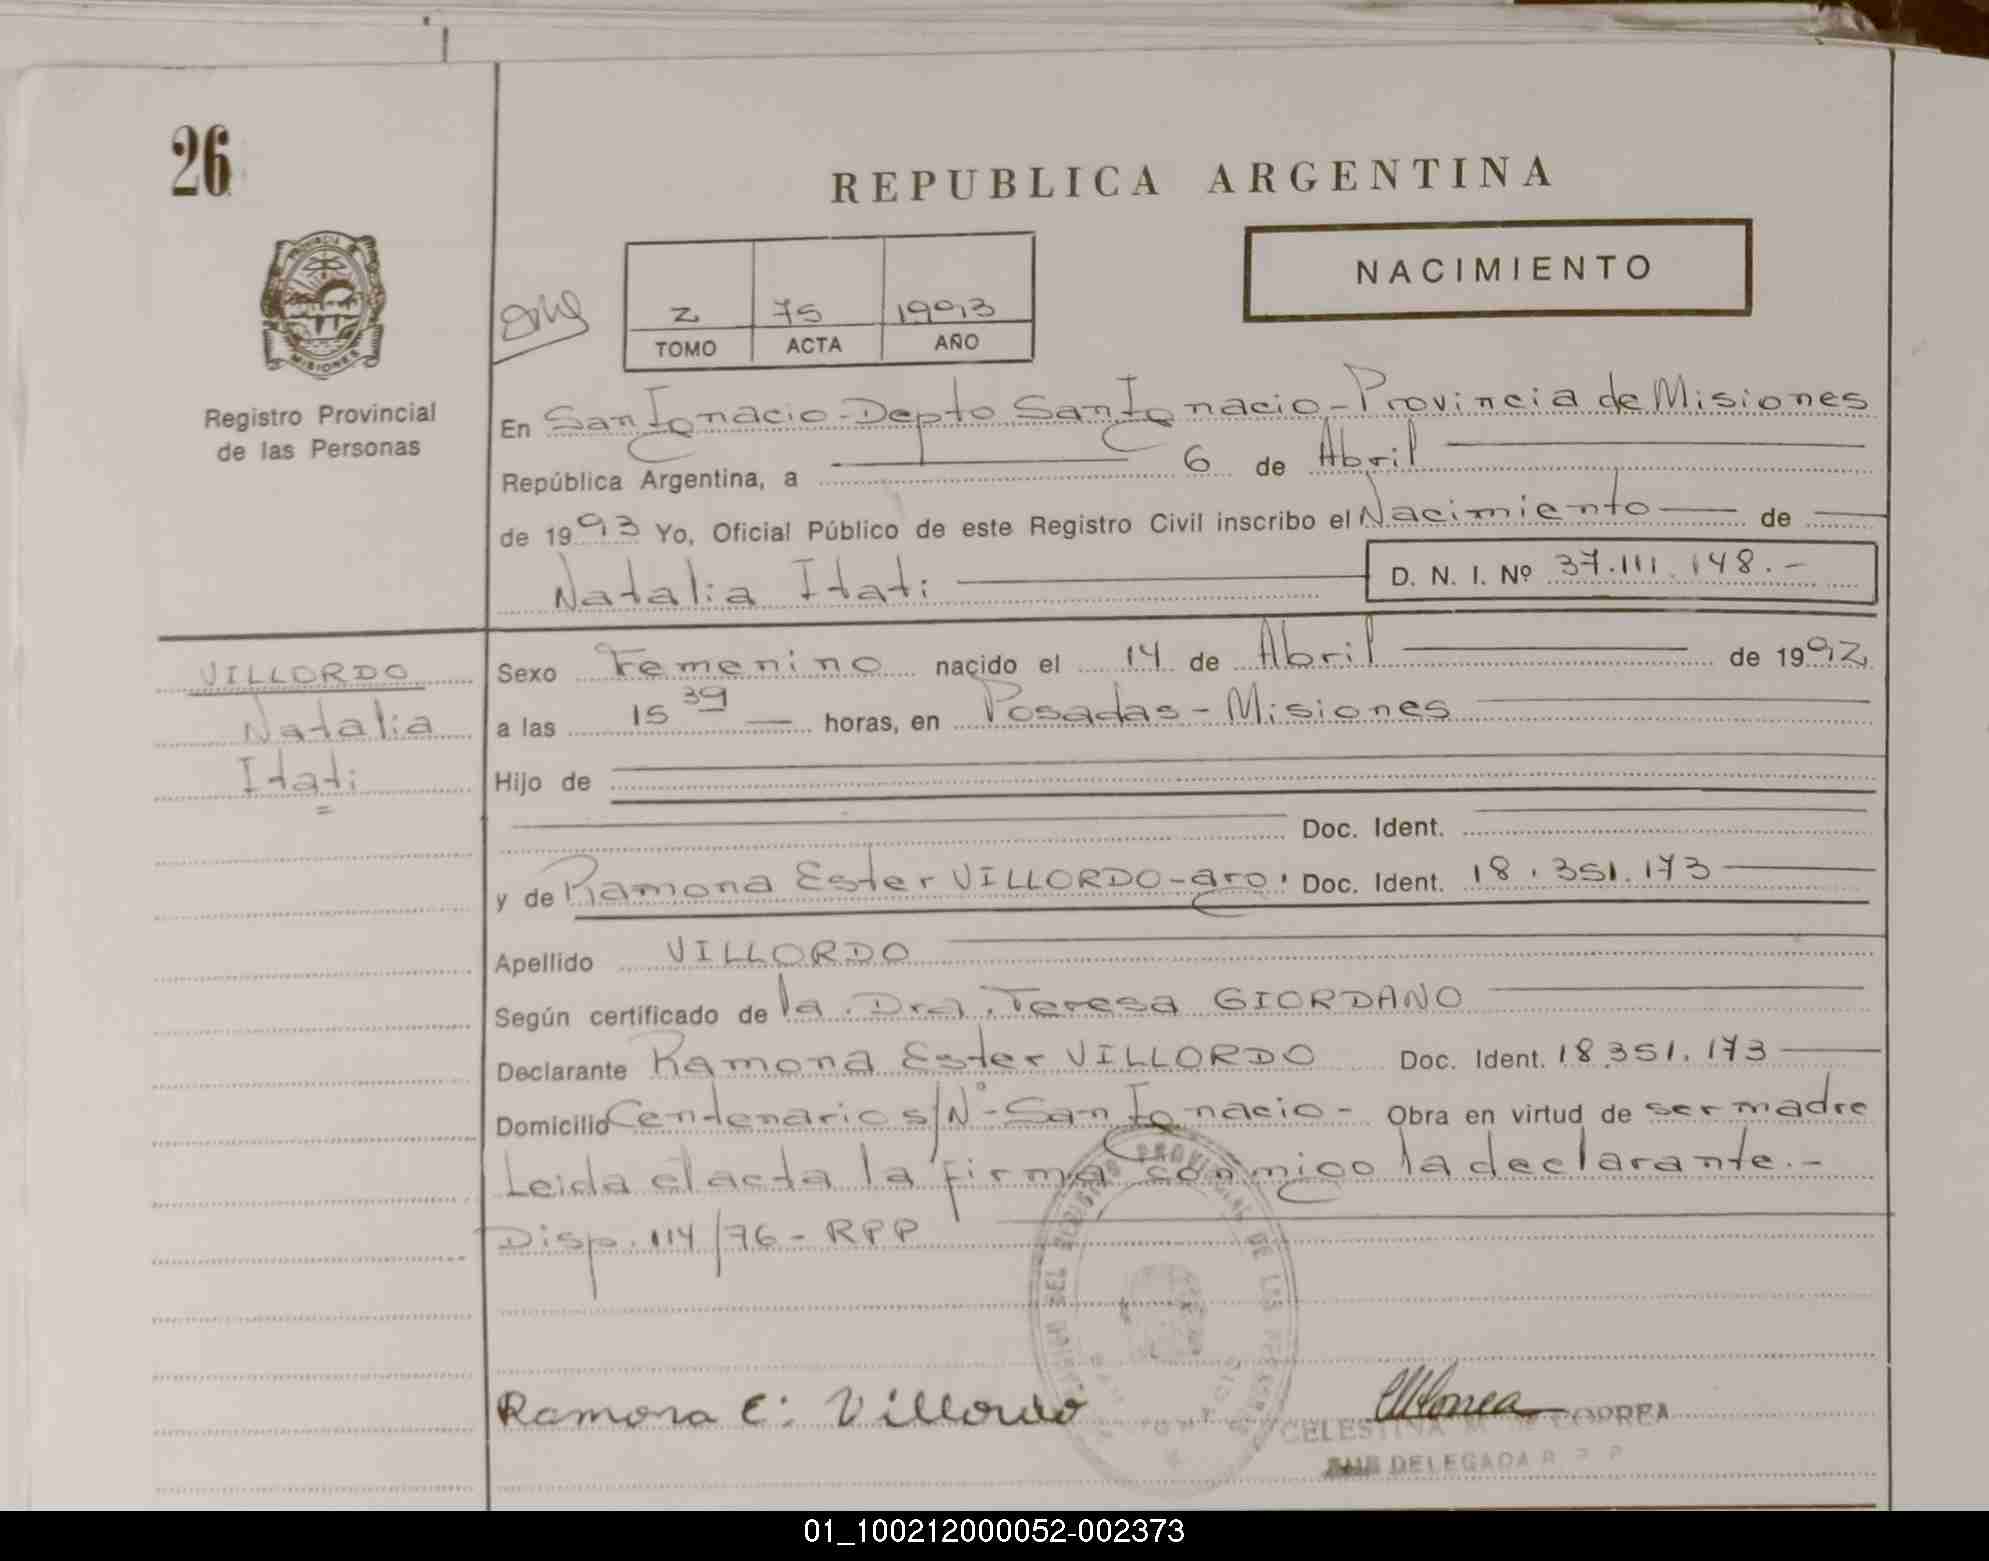 26
REPUBLICA ARGENTINA
NACIMIENTO
PROVINCIA DE
MISIONES
Registro Provincial
de las Personas
2 75 1993
TOMO ACTA AÑO
En San Ignacio-Depto San Ignacio-Provincia de Misiones
República Argentina, a 6 de Abril
de 1993 Yo, Oficial Público de este Registro Civil inscribo el Nacimiento de
Natalia Itati D. N. I. Nº 37.111.148.-
VILLORDO
Natalia
Itati
Sexo Femenino nacido el 14 de Abril de 1992
a las 15 39 horas, en Posadas-Misiones
Hijo de
Doc. Ident.
y de Ramona Ester VILLORDO-arg. Doc. Ident. 18.351.173
Apellido VILLORDO
Según certificado de la Dra. Teresa GIORDANO
Declarante Ramona Ester VILLORDO Doc. Ident. 18.351.173
Domicilio Centenario s/Nº-San Ignacio- Obra en virtud de ser madre
Leida el acta la firma conmigo la declarante.-
Disp. 114/76-RPP
Ramona E. Villordo
CELESTINA M. CORREA
SUB DELEGADA R P P
01_100212000052-002373